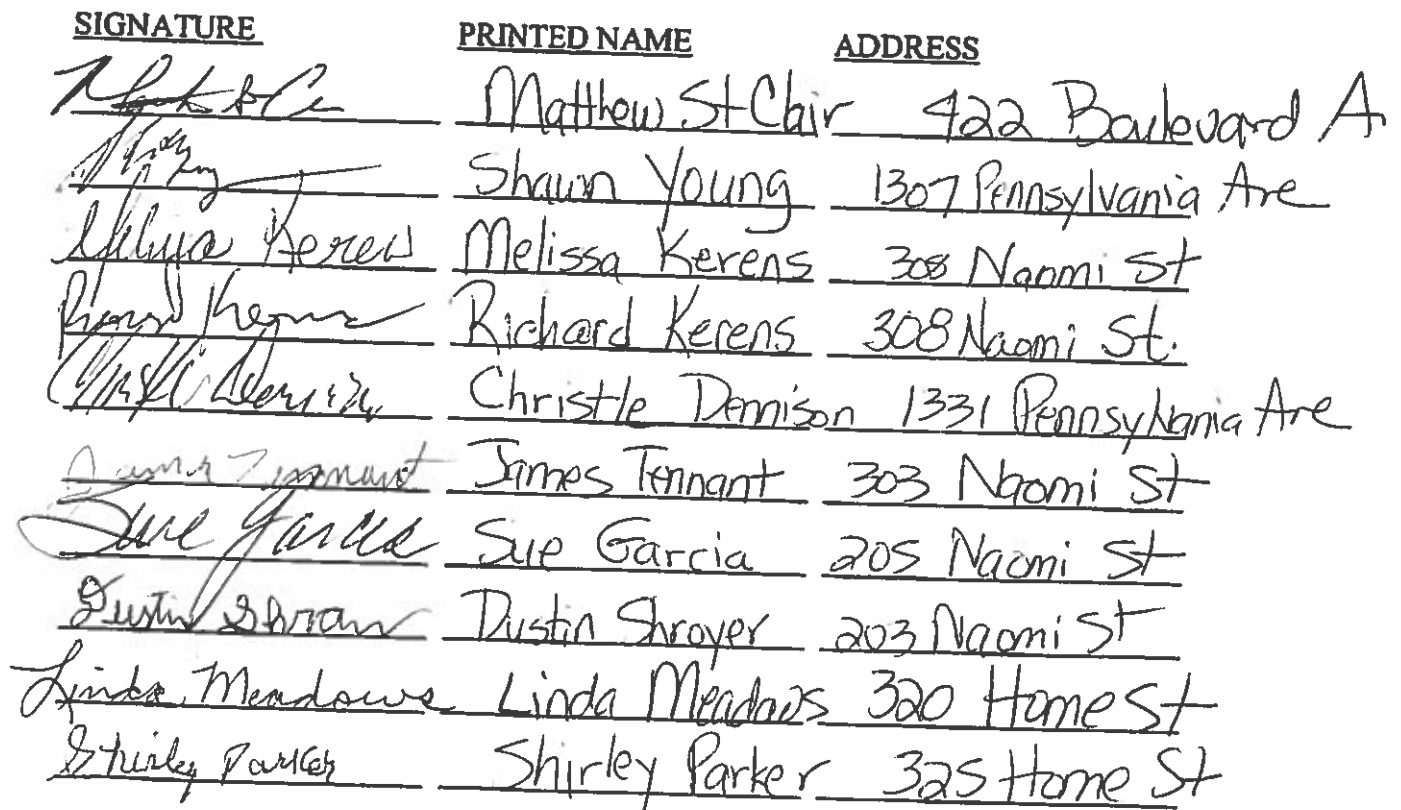 SIGNATURE PRINTED NAME ADDRESS
Matthew St Clair 422 Boulevard A
Shawn Young 1307 Pennsylvania Ave
Melissa Kerens 308 Naomi St
Richard Kerens 308 Naomi St.
Christle Dennison 1331 Pennsylvania Ave
James Tennant James Tennant 303 Naomi St
Sue Garcia Sue Garcia 205 Naomi St
Dustin Dustin Shroyer 203 Naomi St
Linda Meadows Linda Meadows 320 Home St
Shirley Parker Shirley Parker 325 Home St